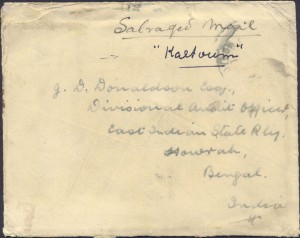 Salvaged Mail
"Kaltoum"
J. D. Donaldson Esq.,
Divisional Audit Officer,
East Indian State Rly.
Howrah,
Bengal.
India